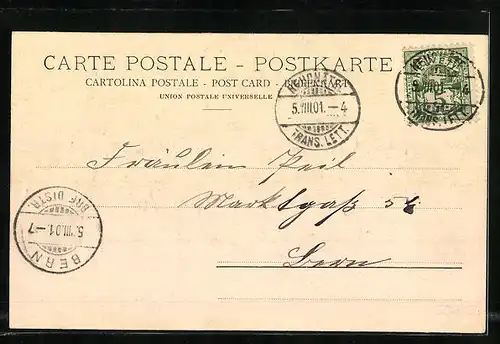 CARTE POSTALE – POSTKARTE
CARTOLINA POSTALE - POST CARD -
UNION POSTALE UNIVERSELLE
5.VIII.01.–4
TRANS. LETT.
5.VIII.01.–4
TRANS. LETT.
Fräulein
Marktgaß
Bern
BRF. DISTR.
5.VIII.01.–7
BERN